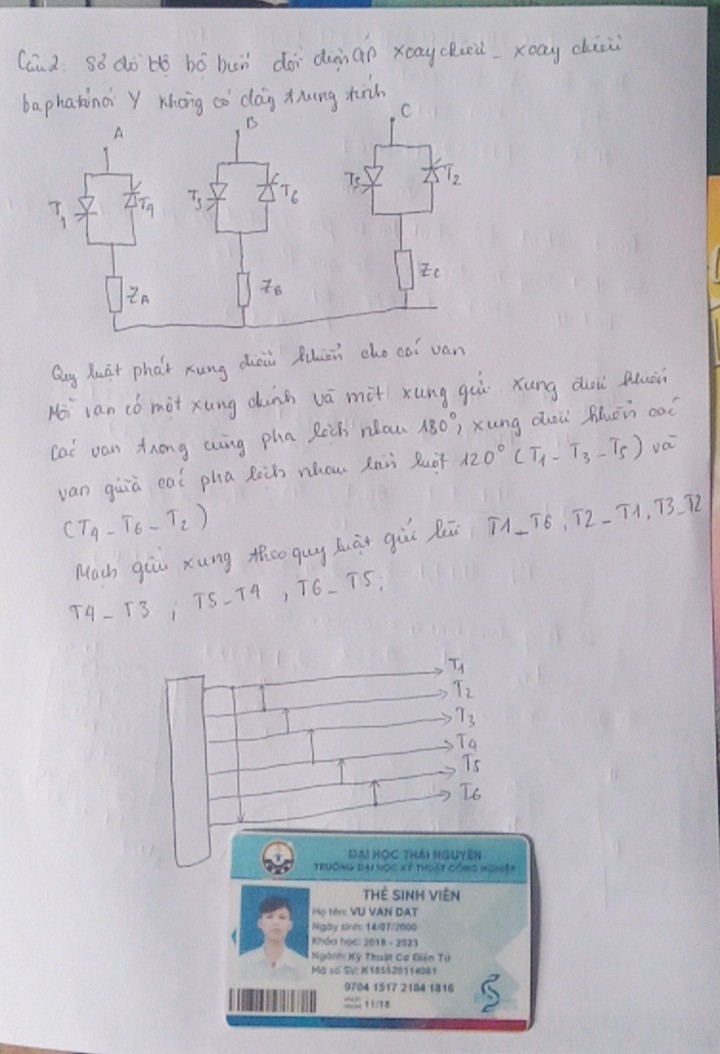 Câu 2. Sơ đồ bộ bộ biến đổi điện áp xoay chiều - xoay chiều
ba pha nối Y không có dây trung tính
A
B
C
T1
T4
T3
T6
T5
T2
ZA
ZB
ZC
Quy luật phát xung điều khiển cho các van
Mỗi van có một xung chính và một xung gửi. Xung điều khiển
các van trong cùng pha lệch nhau 180°, xung điều khiển các
van giữa các pha lệch nhau lần lượt 120° (T1 - T3 - T5) và
(T4 - T6 - T2)
Mạch gửi xung theo quy luật gửi lùi T1_T6, T2_T1, T3_T2
T4_T3 ; T5_T4 , T6_T5;
T1
T2
T3
T4
T5
T6
ĐẠI HỌC THÁI NGUYÊN
TRƯỜNG ĐẠI HỌC KỸ THUẬT CÔNG NGHIỆP
THẺ SINH VIÊN
Họ tên: VU VAN DAT
Ngày sinh: 14/07/2000
Khóa học: 2018 - 2023
Ngành: Kỹ Thuật Cơ Điện Tử
Mã số SV: K185520114081
9704 1517 2184 1816
11/18